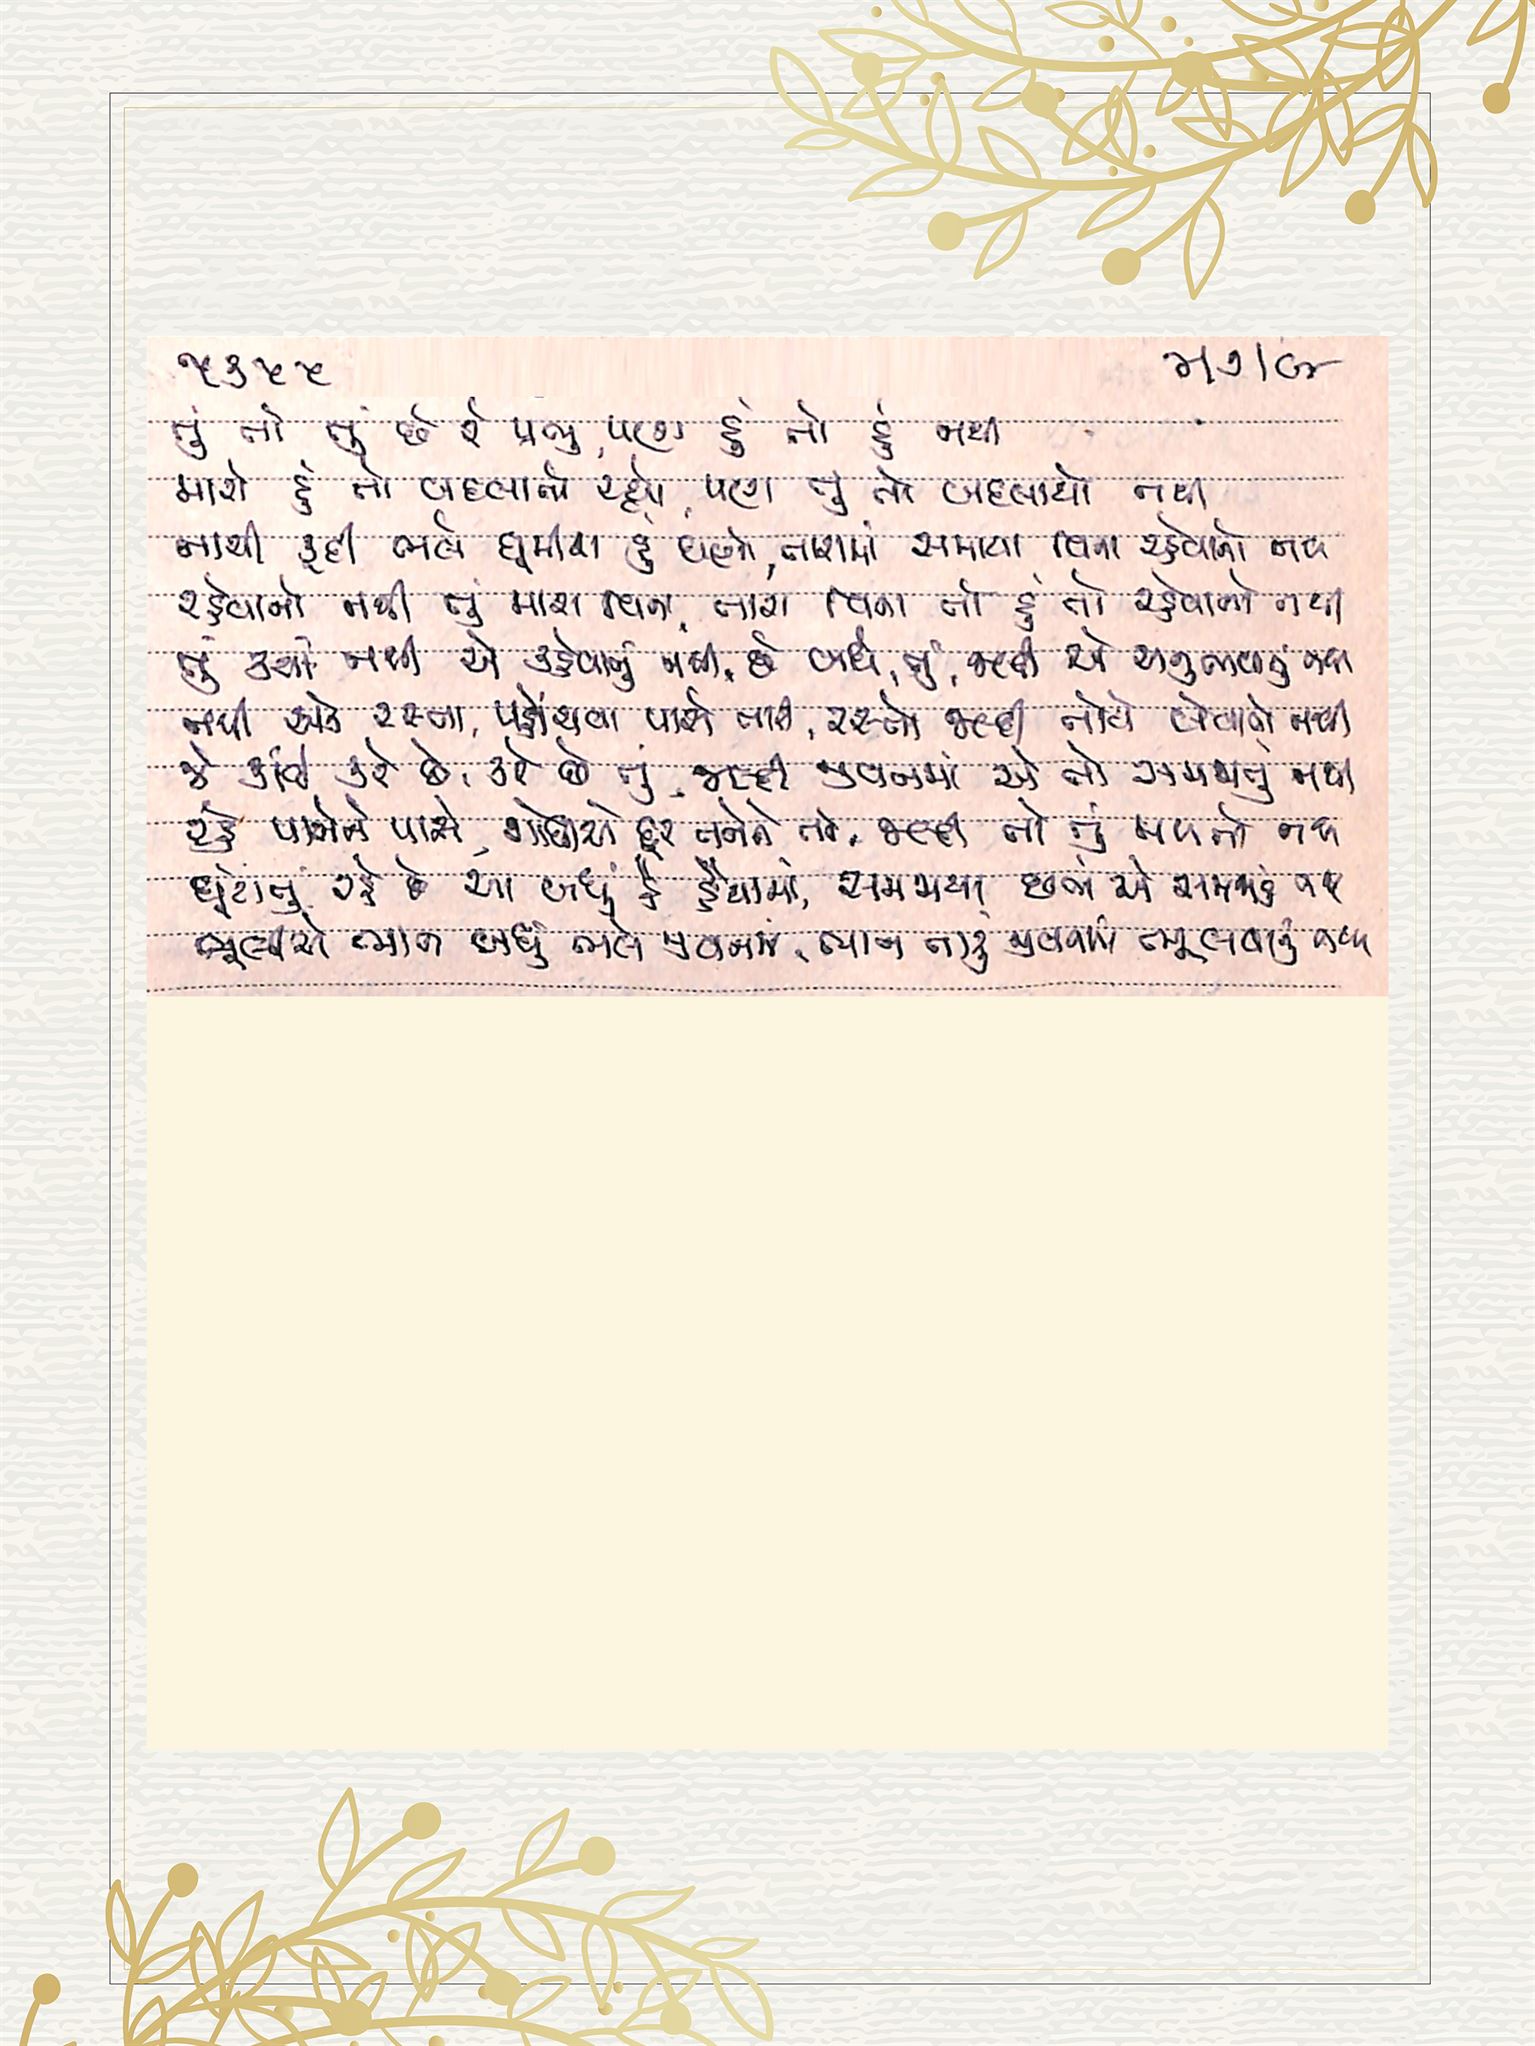 તું તો તું છે રે પ્રભુ, પણ હું તો હું નથી
મારો હું તો બદલાતો રહ્યો, પણ તું તો બદલાયો નથી
તારાથી છૂટી ભલે ઘૂમીશ હું ઘણો, તારામાં સમાયા વિના રહેવાનો નથી
રહેવાનો નથી તું મારા વિના, તારા વિના તો હું તો રહેવાનો નથી
તું ક્યાં નથી એ કહેવાનું નથી, છે બધે તું, જલ્દી એ અનુભવાતું નથી
નથી એક રસ્તા, પહોંચવા પાસે તારી, રસ્તો જલ્દી તોયે લેવાતો નથી
જે કાંઈ કરે છે, કરે છે તું, જલ્દી જીવનમાં એ તો સમજાતું નથી
રહે પાસેને પાસે, ગોતીએ દૂર તનેને તને, જલ્દી તો તું મળતો નથી
ઘૂંટાતું રહે છે આ બધું રે હૈયામાં, સમજાયા છતાં એ સમજાતું નથી
ભૂલીએ ભાન બધું ભલે જીવનમાં, ભાન તારું જીવનમાં ભૂલવાનું નથી